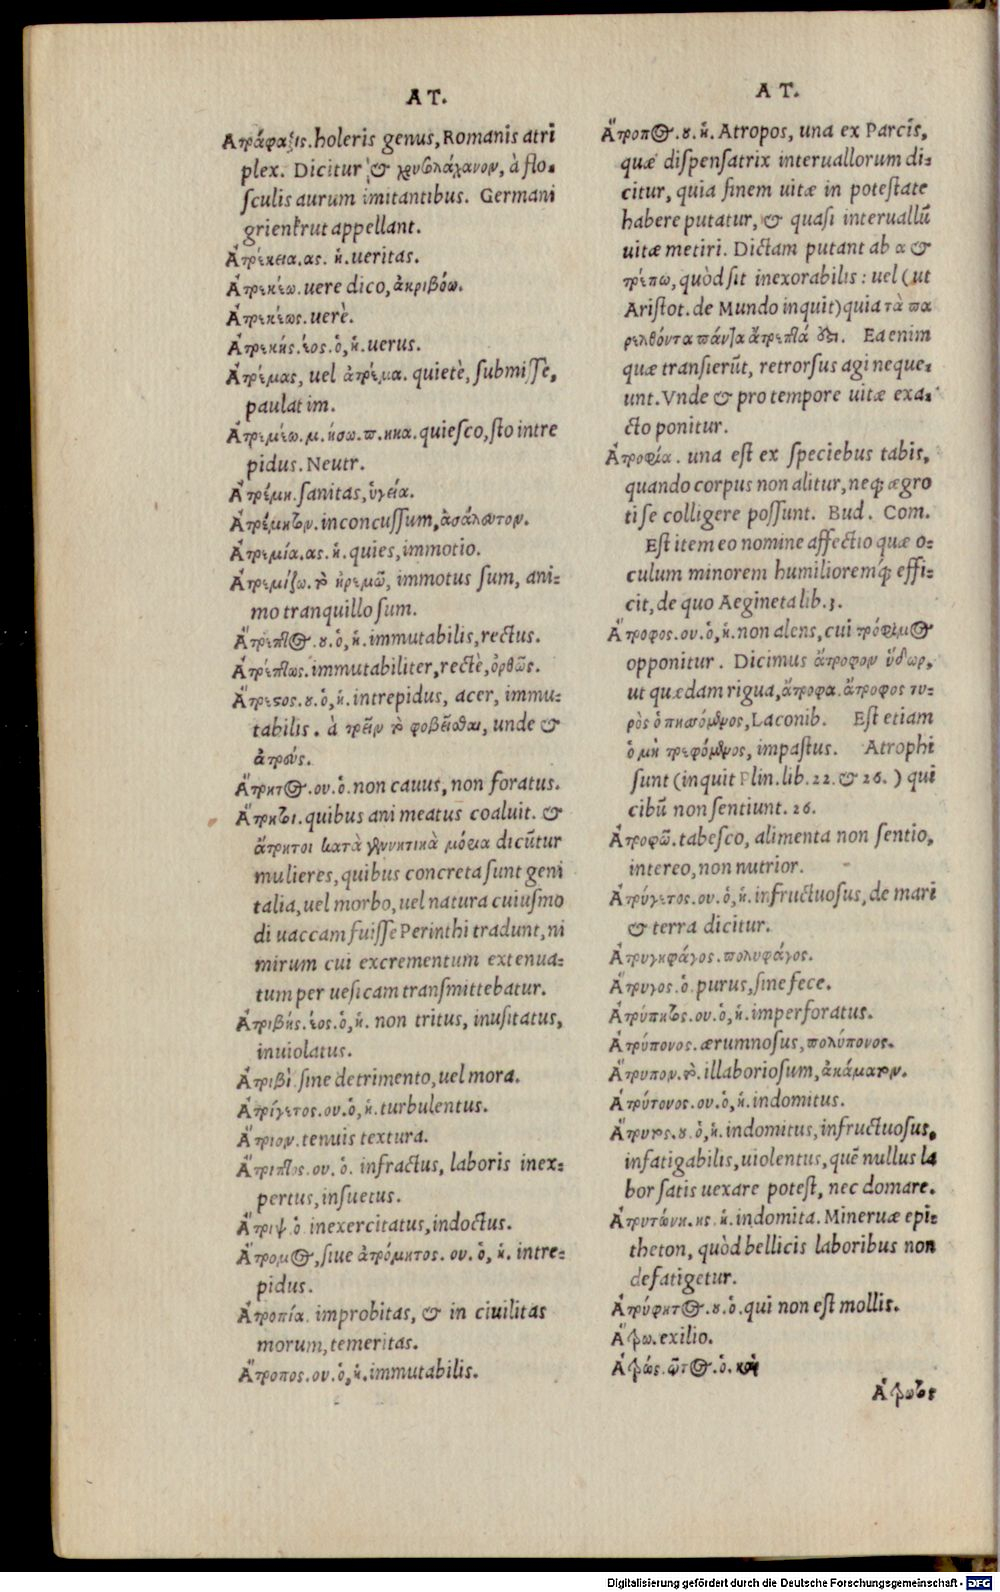 AT.
Ατράφαξις. holeris genus, Romanis atri
plex. Dicitur & χρυσολάχανον, à flo-
sculis aurum imitantibus. Germani
grienkrut appellant.
Ἀτρέκεια. ας. ἡ. ueritas.
Ἀτρεκέω. uere dico, ἀκριβόω.
Ἀτρεκέως. uerè.
Ἀτρεκής. έος. ὁ, ἡ. uerus.
Ἀτρέμας, uel ἀτρέμα. quietè, submisse,
paulatim.
Ἀτρεμέω. μ. ήσω. π. ηκα. quiesco, sto intre
pidus. Neutr.
Ἀτρέμη. sanitas, ὑγεία.
Ἀτρέμητον. inconcussum, ἀσάλευτον.
Ἀτρεμία. ας. ἡ. quies, immotio.
Ἀτρεμίζω. τὸ ἠρεμῶ, immotus sum, ani-
mo tranquillo sum.
Ἄτρεπτος. ου. ὁ, ἡ. immutabilis, rectus.
Ἀτρέπτως. immutabiliter, rectè, ὀρθῶς.
Ἄτρεστος. ου. ὁ, ἡ. intrepidus, acer, immu-
tabilis. à τρεῖν τὸ φοβεῖσθαι, unde &
ἀτρούς.
Ἄτρητος. ου. ὁ. non cauus, non foratus.
Ἄτρητοι. quibus ani meatus coaluit. &
ἄτρητοι κατὰ γεννητικὰ μόρια dicũtur
mulieres, quibus concreta sunt geni
talia, uel morbo, uel natura cuiusmo
di uaccam fuisse Perinthi tradunt, ni
mirum cui excrementum extenua-
tum per uesicam transmittebatur.
Ἀτριβής. έος. ὁ, ἡ. non tritus, inusitatus,
inuiolatus.
Ἀτριβὶ. sine detrimento, uel mora.
Ἀτρίγετος. ου. ὁ, ἡ. turbulentus.
Ἄτριον. tenuis textura.
Ἄτριπτος. ου. ὁ. infractus, laboris inex-
pertus, insuetus.
Ἄτριψ. ὁ. inexercitatus, indoctus.
Ἄτρομος, siue ἀτρόμητος. ου. ὁ, ἡ. intre-
pidus.
Ἀτροπία. improbitas, & in ciuilitas
morum, temeritas.
Ἄτροπος. ου. ὁ, ἡ. immutabilis.
AT.
Ἄτροπος. ου. ἡ. Atropos, una ex Parcis,
quæ dispensatrix interuallorum di-
citur, quia finem uitæ in potestate
habere putatur, & quasi interuallũ
uitæ metiri. Dictam putant ab α &
τρέπω, quòd sit inexorabilis: uel (ut
Aristot. de Mundo inquit) quia τὰ πα
ρελθόντα πάντα ἄτρεπτά ἐστι. Ea enim
quæ transierũt, retrorsus agi neque-
unt. Vnde & pro tempore uitæ exa-
cto ponitur.
Ἀτροφία. una est ex speciebus tabis,
quando corpus non alitur, neq; ægro
ti se colligere possunt. Bud. Com.
Est item eo nomine affectio quæ o-
culum minorem humilioremq́; effi-
cit, de quo Aegineta lib. 3.
Ἄτροφος. ου. ὁ, ἡ. non alens, cui τρόφιμος
opponitur. Dicimus ἄτροφον ὕδωρ,
ut quædam rigua, ἄτροφα. ἄτροφος τυ-
ρὸς ὁ πησσόμενος, Laconib. Est etiam
ὁ μὴ τρεφόμενος, impastus. Atrophi
sunt (inquit Plin. lib. 22. & 26.) qui
cibũ non sentiunt. 26.
Ἀτροφῶ. tabesco, alimenta non sentio,
intereo, non nutrior.
Ἀτρύγετος. ου. ὁ, ἡ. infructuosus, de mari
& terra dicitur.
Ἀτρυγηφάγος. πολυφάγος.
Ἄτρυγος. ὁ. purus, sine fece.
Ἀτρύπητος. ου. ὁ, ἡ. imperforatus.
Ἀτρύπονος. ærumnosus, πολύπονος.
Ἄτρυπον. τὸ. illaboriosum, ἀκάματον.
Ἀτρύτονος. ου. ὁ, ἡ. indomitus.
Ἄτρυτος. ου. ὁ, ἡ. indomitus, infructuosus,
infatigabilis, uiolentus, quẽ nullus la
bor satis uexare potest, nec domare.
Ἀτρυτώνη. ης. ἡ. indomita. Mineruæ epi-
theton, quòd bellicis laboribus non
defatigetur.
Ἀτρύφητος. ου. ὁ. qui non est mollis.
Ἄττω. exilio.
ὁ. καὶ